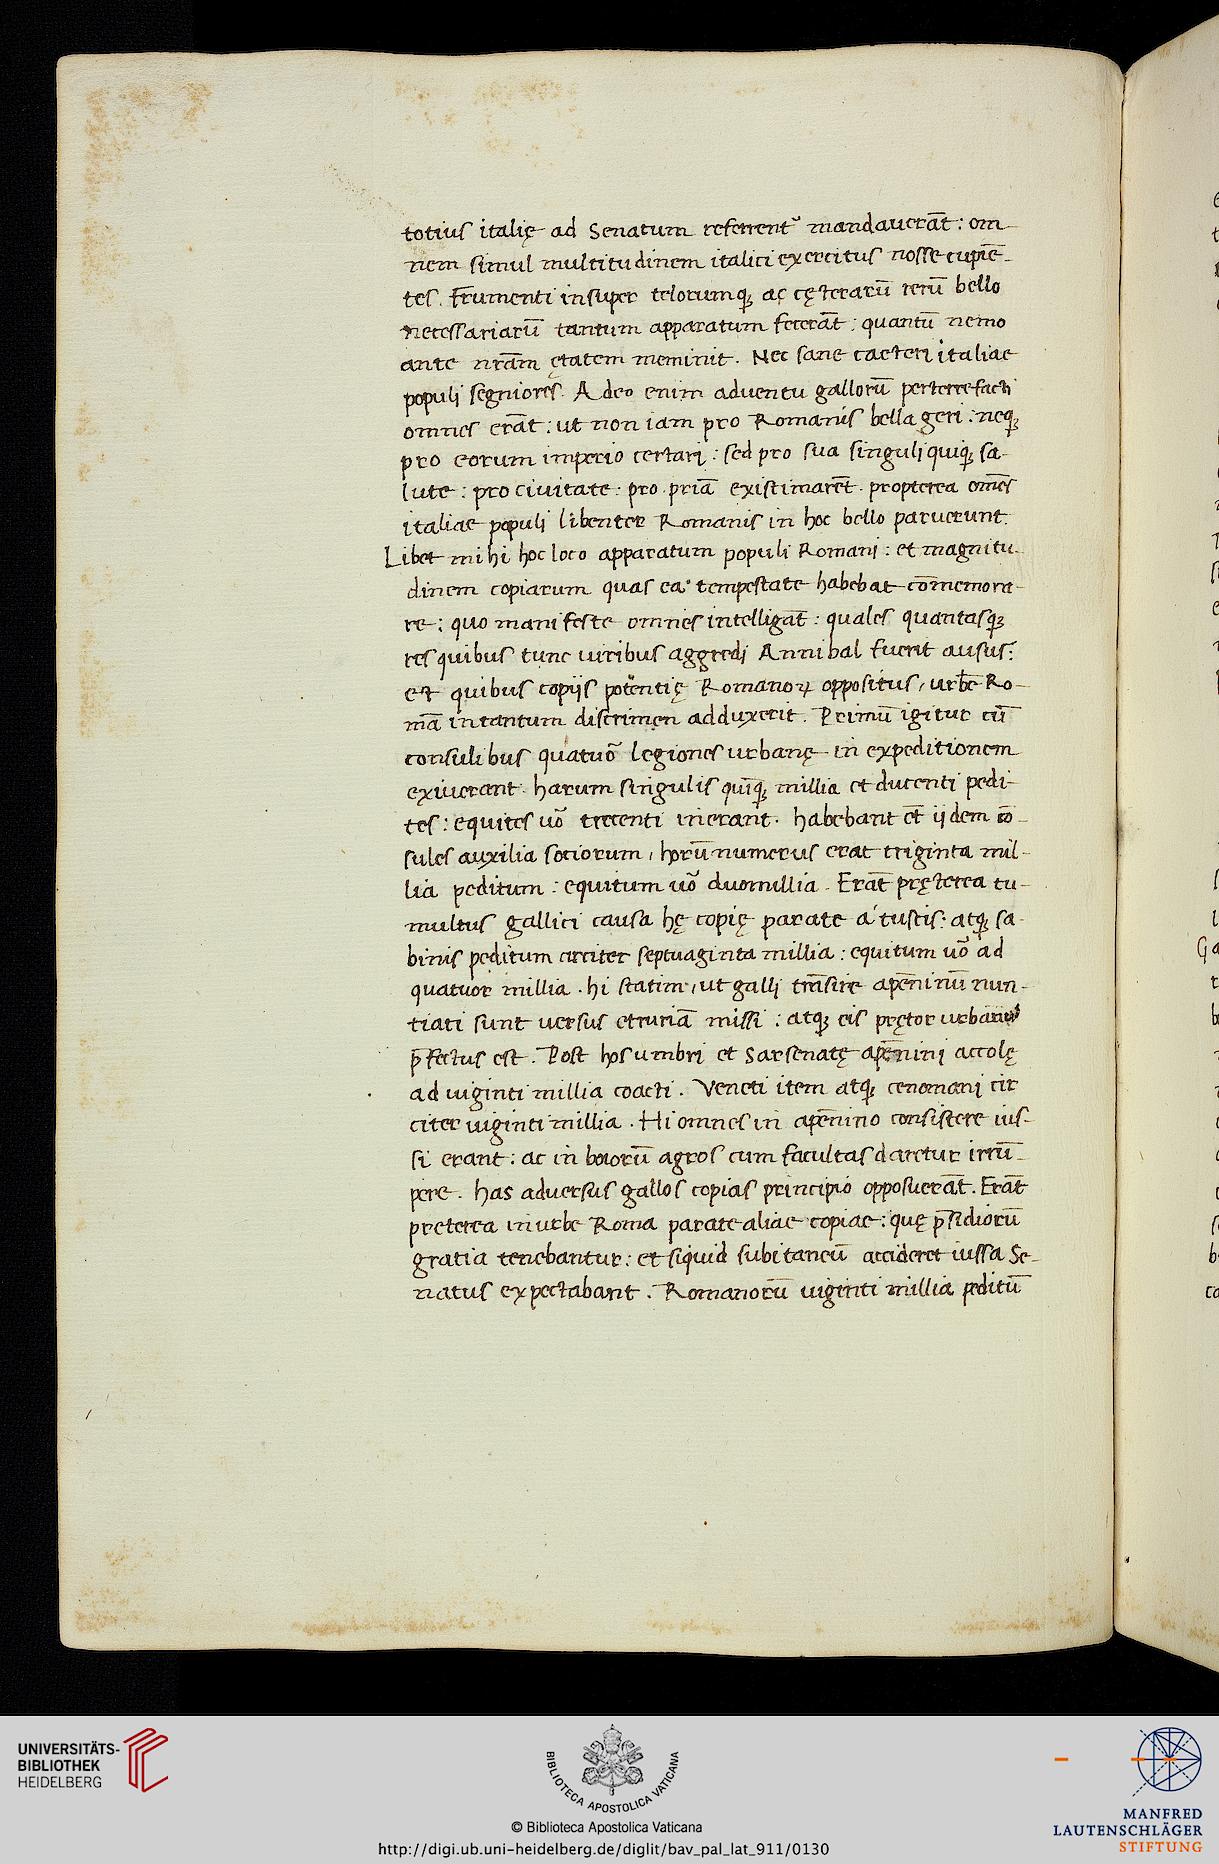 totius italię ad Senatum referrent᷒ mandauerāt: om-
nem simul multitudinem italici exercitus nosse cupiē-
tes. Frumenti insuper telorumq; ac cęterarū rerū bello
necessariarū tantum apparatum fecerāt: quantū nemo
ante nr̄am ętatem meminit. Nec sane caeteri italiae
populi segniores. Adeo enim aduentu gallorū perterrefacti
omnes erāt: ut non iam pro Romanis bella geri: neq;
pro eorum imperio certari: sed pro sua singuli quiq; sa-
lute: pro ciuitate: pro priā existimarēt. propterea om̄es
italiae populi libenter Romanis in hoc bello paruerunt.
Libet mihi hoc loco apparatum populi Romani: et magnitu-
dinem copiarum quas ea tempestate habebat cōmemora-
re: quo manifeste omnes intelligāt: quales quantasq;
res quibus tunc uiribus aggredi Annibal fuerit ausus:
et quibus copiis potentię Romanoꝝ oppositus, urbē Ro-
mā in tantum discrimen adduxerit. Primū igitur cū
consulibus quatuō legiones urbanę in expeditionem
exiuerant. harum singulis quīq; millia et ducenti pedi-
tes: equites uō trecenti inerant. habebant et̄ ijdem cō-
sules auxilia sociorum, horū numerus erat triginta mil-
lia peditum: equitum uō duomillia. Erāt pręterea tu-
multus gallici causa hę copię parate a tuscis: atq; sa-
binis peditum circiter septuaginta millia: equitum uō ad
quatuor millia. hi statim, ut galli trāsire apēninū nun-
tiati sunt uersus etruriā missi: atq; eis prętor urbanus
p̄fectus est. Post hos umbri et sarsenatę apēnini accolę
ad uiginti millia coacti. Veneti item atq; cenomani cir
citer uiginti millia. Hi omnes in apēnino consistere ius-
si erant: ac in boiorū agros cum facultas daretur irrū-
pere. has aduersus gallos copias principio opposuerāt. Erāt
preterea in urbe Roma parate aliae copiae: quę p̄sidiorū
gratia tenebantur: et siquid subitaneū accideret iussa Se-
natus expectabant. Romanorū uiginti millia peditū
UNIVERSITÄTS-
BIBLIOTHEK
HEIDELBERG
BIBLIOTECA APOSTOLICA VATICANA
© Biblioteca Apostolica Vaticana
http://digi.ub.uni-heidelberg.de/diglit/bav_pal_lat_911/0130
MANFRED
LAUTENSCHLÄGER
STIFTUNG